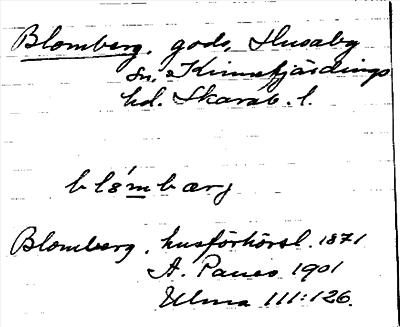 Blomberg, gods, Husaby
sn, Kinnefjärdings
hd. Skarab. l.
blómbærj
Blomberg, husförhörsl. 1871
A. Paues 1901
Ulma 111:126.